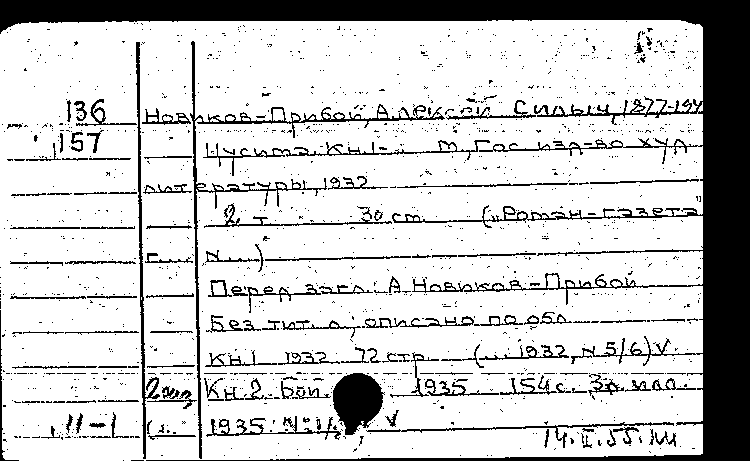 136 Новиков-Прибой, Алексей Силыч, 1877-194
157 Цусима. Кн. 1-.. М., Гос изд-во худ
литературы, 1932
2 т 30 см. („Роман-газета"
г.... N...)
Перед загл.: А. Новиков-Прибой
Без тит. л; описано по обл
Кн. 1 1932 72 стр (... 1932, N 5/6) V
2 экз Кн. 2. Бой. 1935 154 с. 3 л. илл.
11-1 (... 1935. № 1/ V
14.II.55.